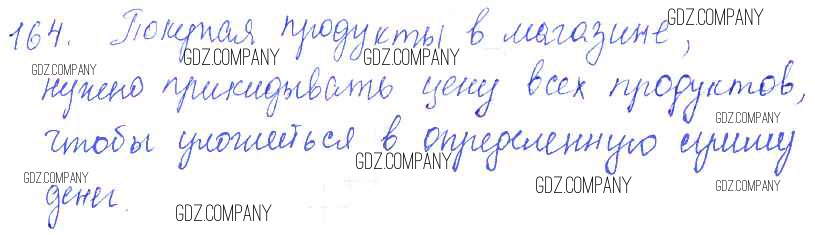 164. Покупая продукты в магазине,
нужно прикидывать цену всех продуктов,
чтобы уложиться в определенную сумму
денег.
GDZ.COMPANY
GDZ.COMPANY
GDZ.COMPANY
GDZ.COMPANY
GDZ.COMPANY
GDZ.COMPANY
GDZ.COMPANY
GDZ.COMPANY
GDZ.COMPANY
GDZ.COMPANY
GDZ.COMPANY